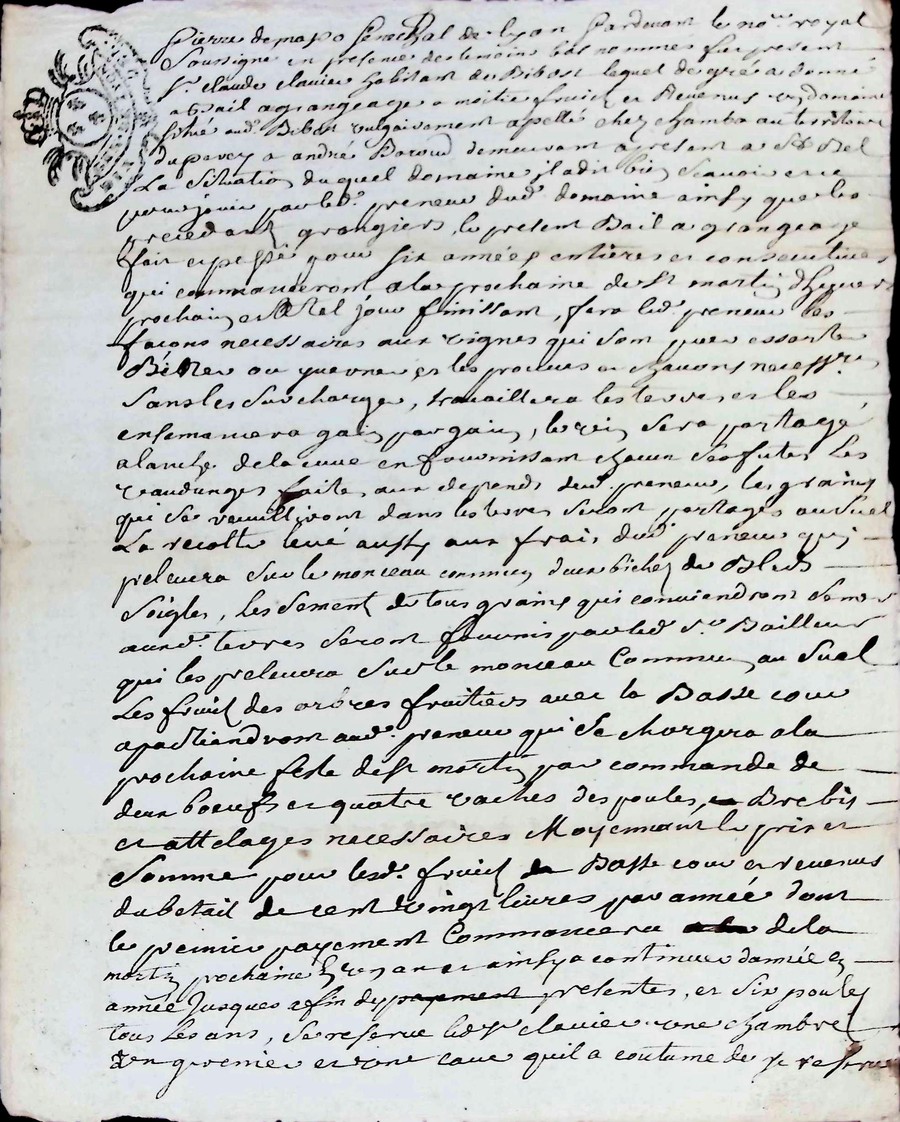 Pierre de masso senechal de lyon Pardevant le no.re royal
Soussigné en presence des temoins bas nommes fut present
S.r claude clavier habitant de Bibost lequel de gré a donné
a bail a grangeage a moitié fruict et Revenus un domaine
situé aud.t Bibost vulgairement apellé chez chambe au territoire
du pavey a andré Baroud demeurant a present a S.t Bel
La Situation duquel domaine il a dit bien Scavoir et ce
pour jouir par led.t preneur dud.t domaine ainsy que les
precedant grangiers, le present Bail a grangeage
fait et passé pour Six années entières et consecutives
qui commanceront a la prochaine de St martin d'hyvers
prochain et a tel jour finissant, fera led.t preneur les
façons necessaires aux vignes qui Sont
Béner ou et les provins et necess.res
Sans les Surcharger, travaillera les terres et les
ensemancera gain par gain, le vin Sera partagé
a lanche de la cuve en fournissant chacun Ses futes Les
vandanges faites aux depends dud.t preneur, les grains
qui Se reuilliront dans les terres Seront partages au Suel
La recolte levé aussy aux frais dud.t preneur qui
prelevera Sur le monceau commun deux bichets de Bleds
Soigles, les Sement de tous grains qui conviendront Semer
auxd.t terres Seront fournis par led.t S.r Bailleur
qui les prelevera Sur le monceau Commun au Suel
Les fruict des arbres fruitiers avec la Basse cour
apartiendront aud.t preneur qui Se chargera a la
prochaine feste de St martin par commande de
deux boeufs et quatre vaches des poules, Brebis
et attelages necessaires Moyennant le prix et
Somme pour lesd.t fruict de Basse cour et revenus
du betail de cent vingt livres par année dont
le premier payement Commancera de la
martin prochaine en un an et ainsy a continuer d'année en
année jusques a fin des payement presentes, et Six poulet
tous Les ans, Se reserve led.t S.r clavier une chambre
un grenier et une cave qu'il a coutume de se reserver